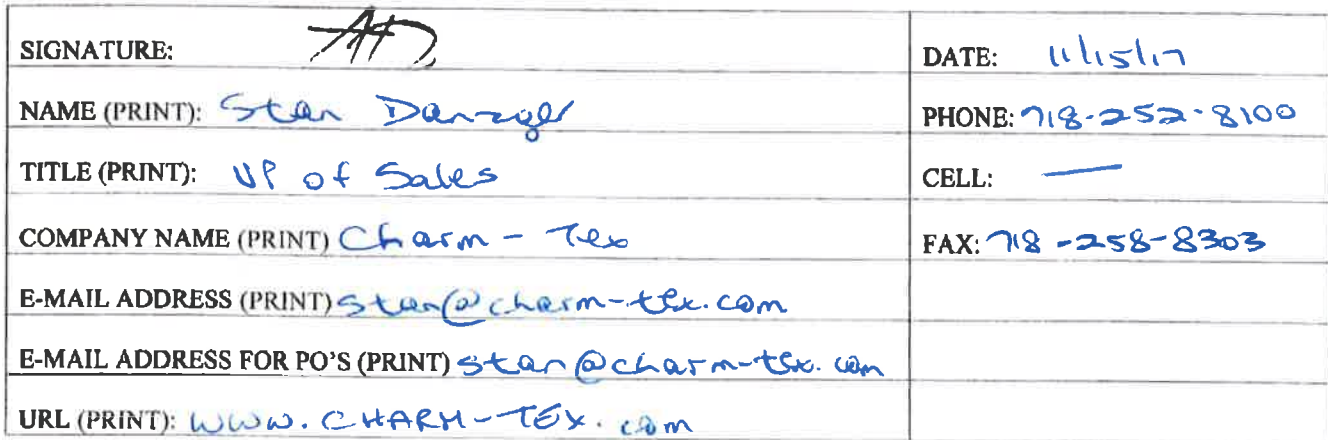 SIGNATURE: DATE: 11/15/17
NAME (PRINT): Stan Danzger PHONE: 718-252-8100
TITLE (PRINT): VP of Sales CELL: —
COMPANY NAME (PRINT) Charm - Tex FAX: 718-258-8303
E-MAIL ADDRESS (PRINT) stan@charm-tex.com
E-MAIL ADDRESS FOR PO'S (PRINT) stan@charm-tex.com
URL (PRINT): WWW.CHARM-TEX.com